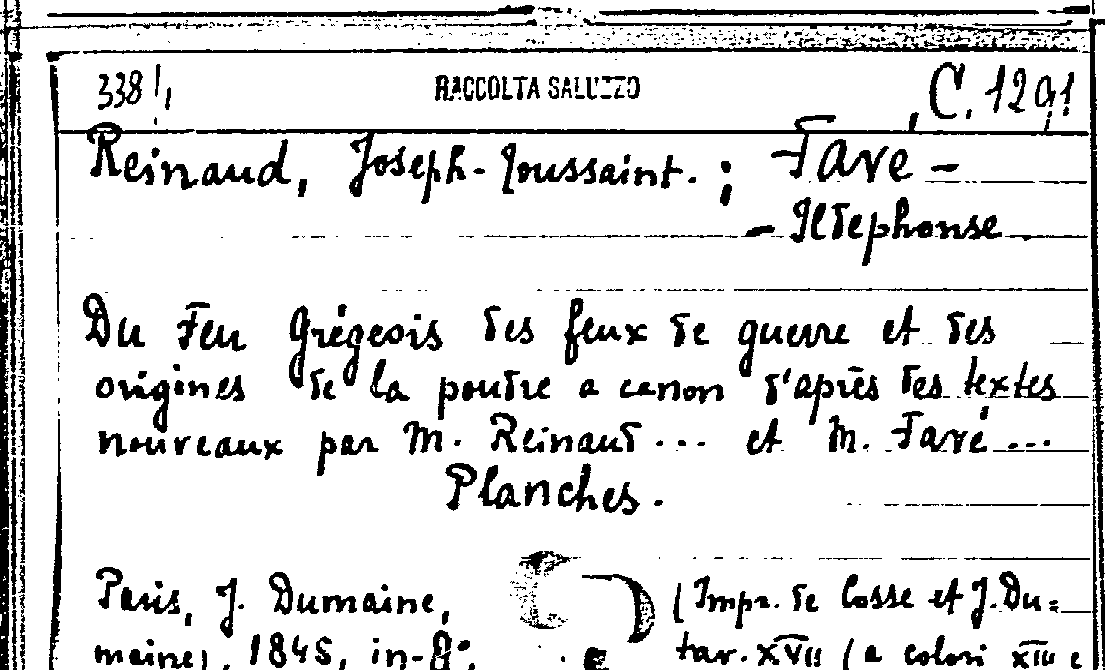 338 RACCOLTA SALUZZO C. 1291
Reinaud, Joseph-Toussaint. ; Favé -
- Ildephonse
Du Feu Grégeois des feux de guerre et des
origines de la poudre a canon d'après des textes
nouveaux par M. Reinaud... et M. Favé...
Planches.
Paris, J. Dumaine, (Impr. de Cosse et J. Du=
maine), 1845, in-8°, tav. XVII (a colori XIII e